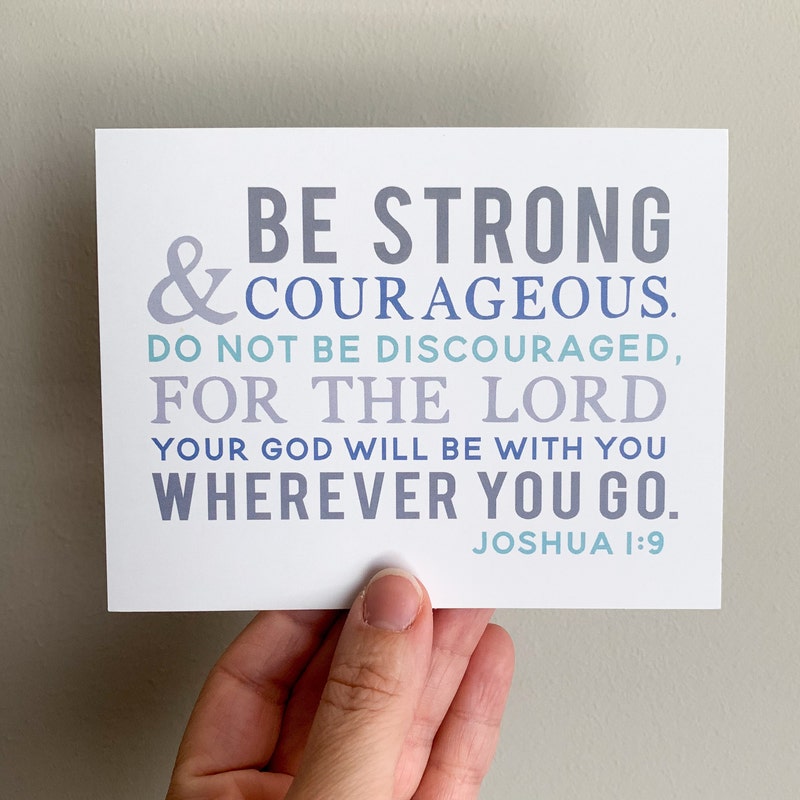 BE STRONG
& COURAGEOUS.
DO NOT BE DISCOURAGED,
FOR THE LORD
YOUR GOD WILL BE WITH YOU
WHEREVER YOU GO.
JOSHUA 1:9